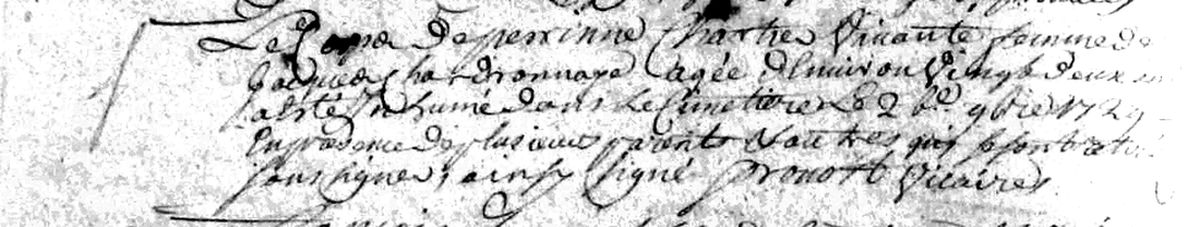 Le Corps de perrinne Chartier vivante femme de
Jacques Chardronnaye agée denviron vingt deux an
a été Inhumé dans Le Cimetiere Le 2 be 9bre 1729
En presence de plusieurs parents & autres qui se sont retir
sans signer, ainsy signé prouost vicaire